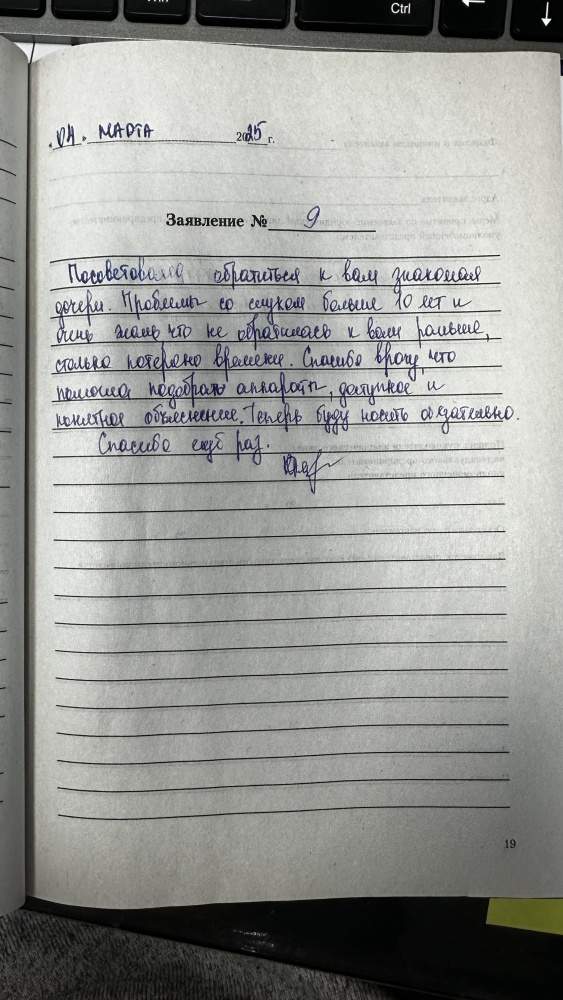 Ctrl
04. МАРТА 2025 г.
Заявление № 9
Посоветовала обратиться к вам знакомая
дочери. Проблемы со слухом больше 10 лет и
очень жаль, что не обратилась к вам раньше,
столько потеряно времени. Спасибо врачу, что
помогла подобрать аппараты, доступное и
понятное объяснение. Теперь буду носить обязательно.
Спасибо ещё раз.
19